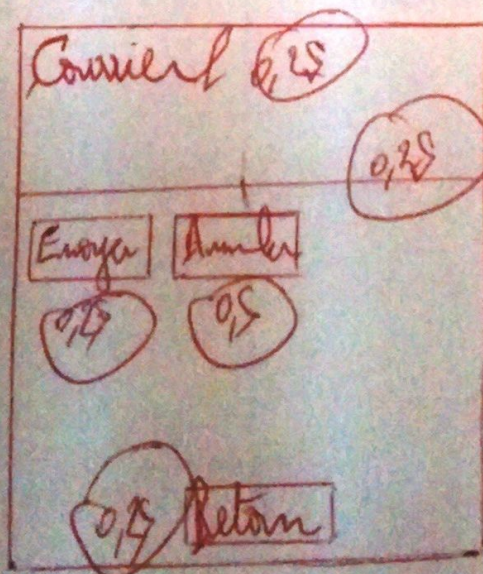 Courriel 0,25
0,25
Envoyer Annuler
0,25 0,5
0,25 Retour